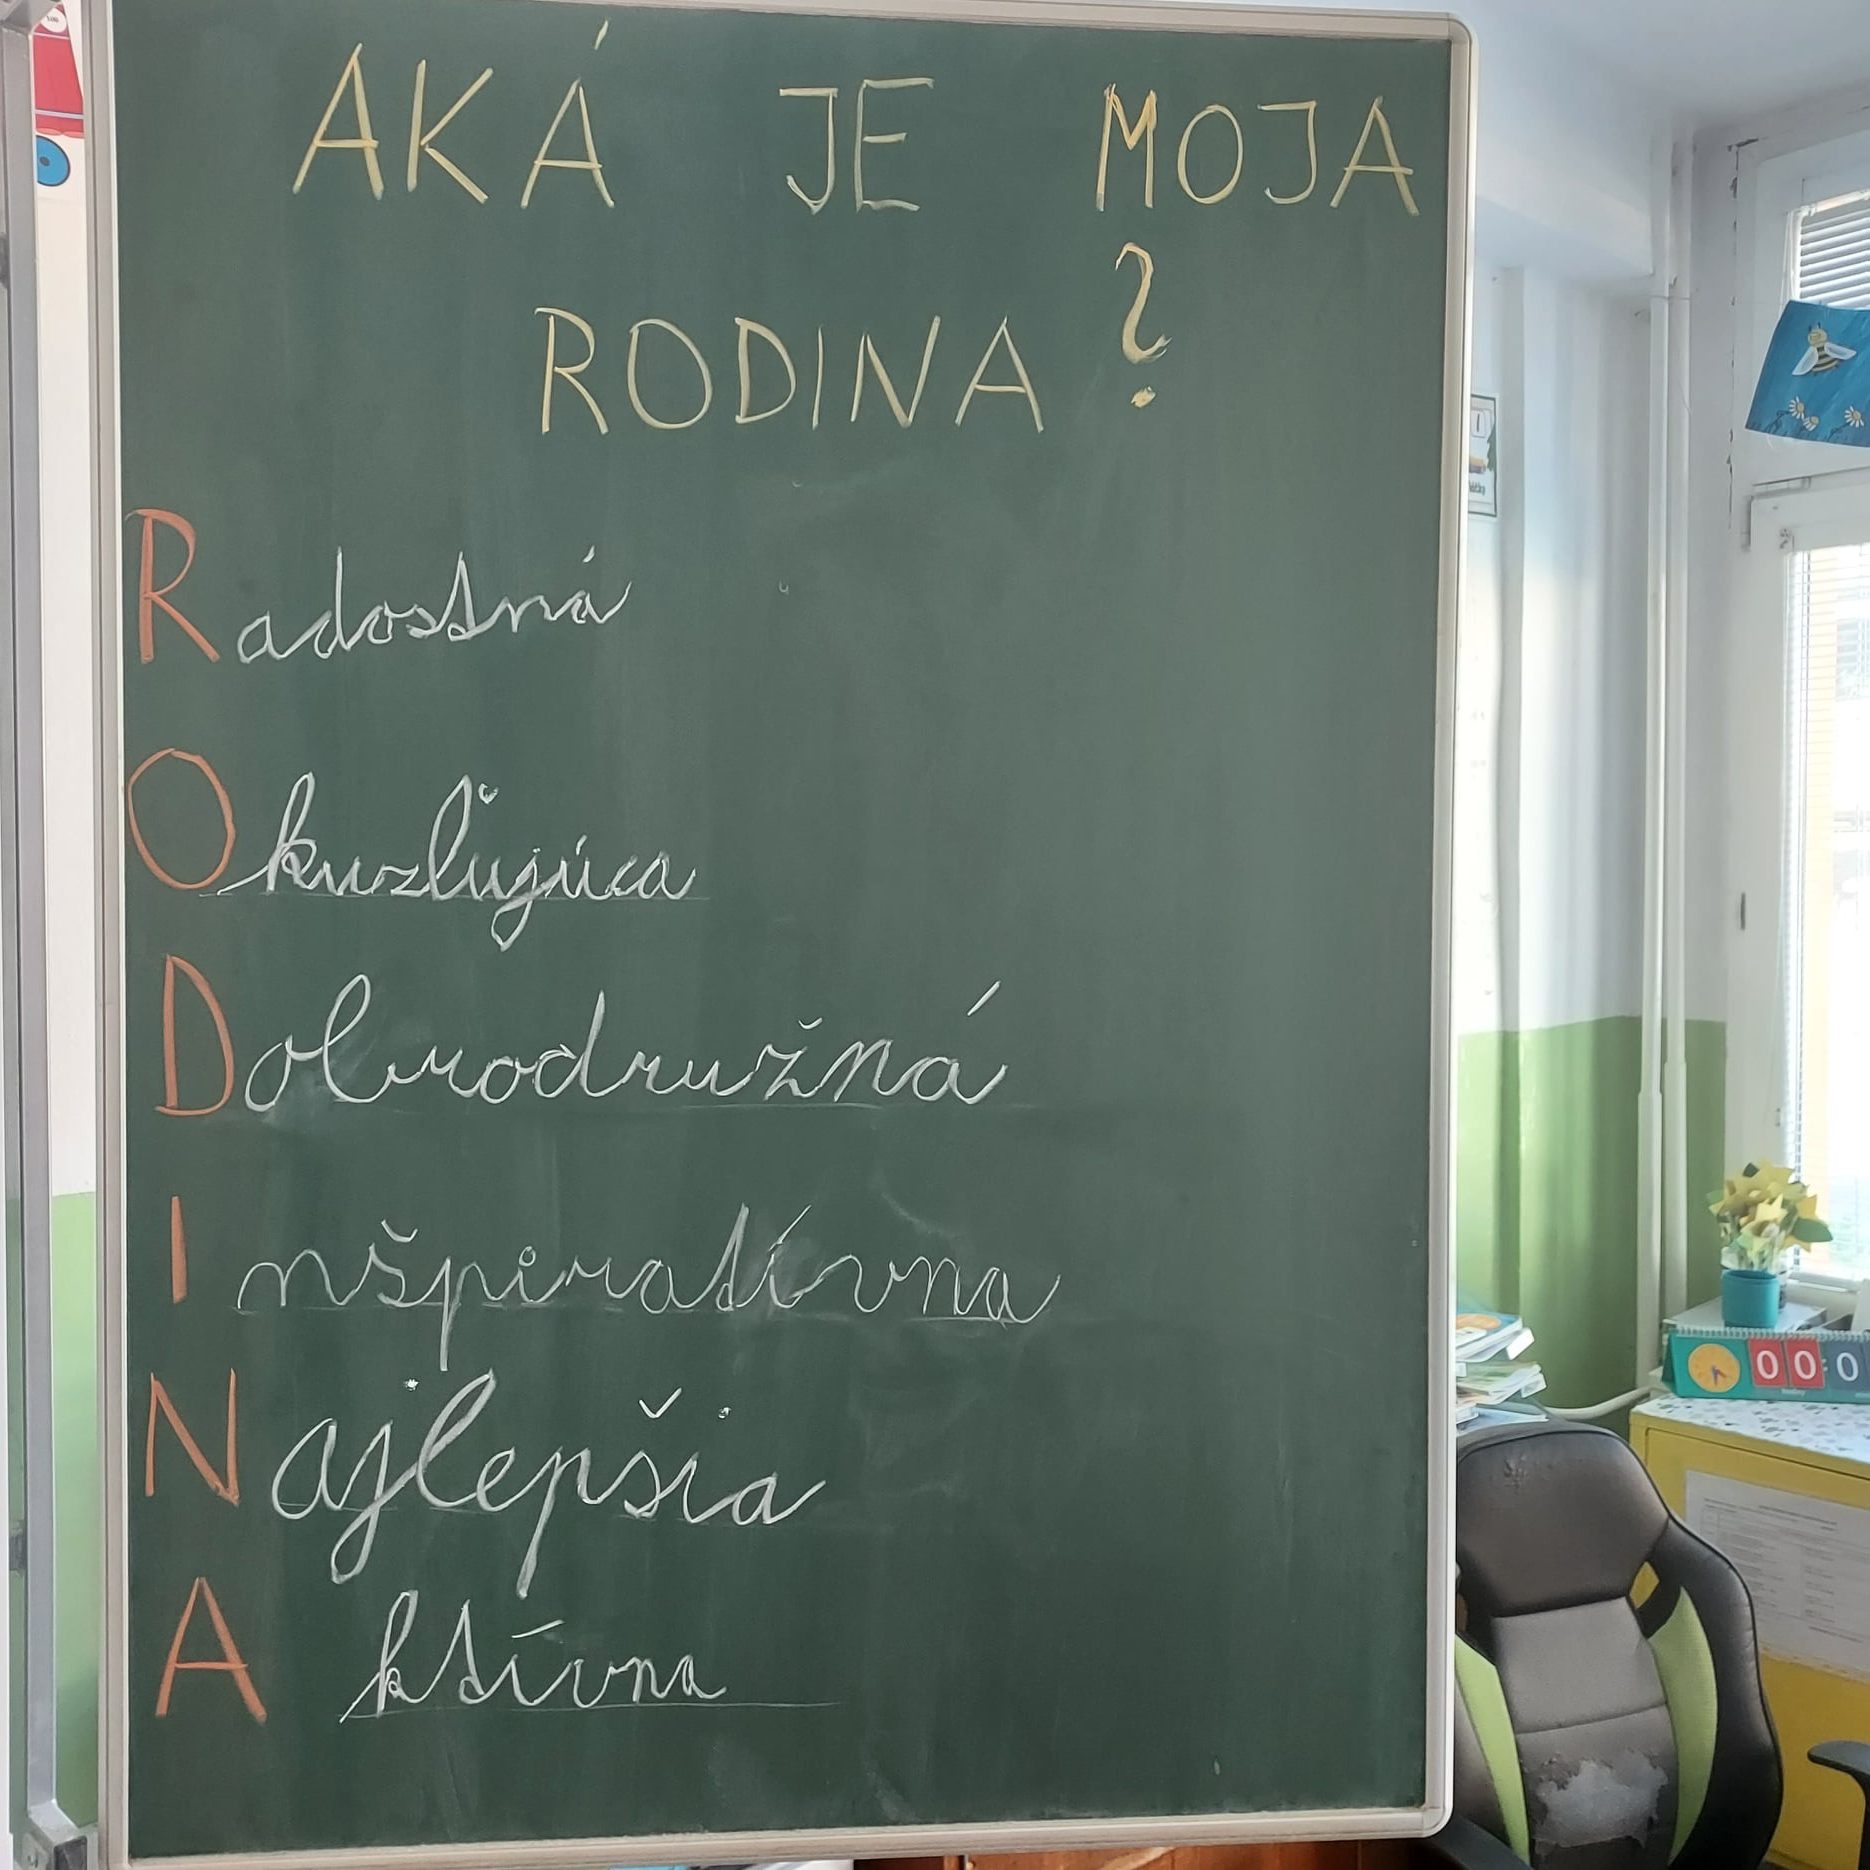 AKÁ JE MOJA
RODINA?
Radostná
Okuzľujúca
Dobrodružná
Inšpiratívna
Najlepšia
Aktívna
00:0